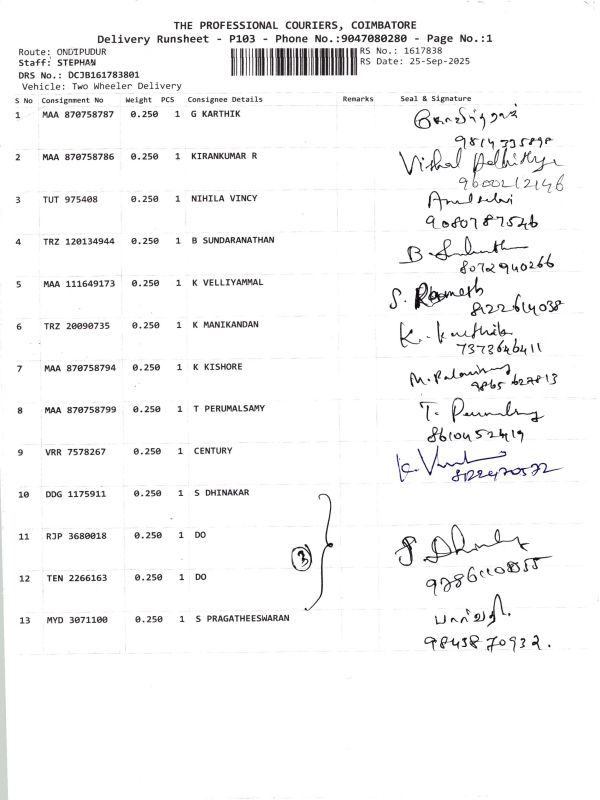 THE PROFESSIONAL COURIERS, COIMBATORE
Delivery Runsheet - P103 - Phone No.:9047080280 - Page No.:1
Route: ONDIPUDUR
RS No.: 1617838
Staff: STEPHAN
RS Date: 25-Sep-2025
DRS No.: DCJB161783801
Vehicle: Two Wheeler Delivery
S No Consignment No Weight PCS Consignee Details Remarks Seal & Signature
1 MAA 870758787 0.250 1 G KARTHIK
2 MAA 870758786 0.250 1 KIRANKUMAR R
Vishal
9600212146
3 TUT 975408 0.250 1 NIHILA VINCY
9080787546
4 TRZ 120134944 0.250 1 B SUNDARANATHAN
B.
8072940266
5 MAA 111649173 0.250 1 K VELLIYAMMAL
S. Ramesh
8122614038
6 TRZ 20090735 0.250 1 K MANIKANDAN
K. Karthik
7373646411
7 MAA 870758794 0.250 1 K KISHORE
9865627813
8 MAA 870758799 0.250 1 T PERUMALSAMY
T.
8610452419
9 VRR 7578267 0.250 1 CENTURY
10 DDG 1175911 0.250 1 S DHINAKAR
11 RJP 3680018 0.250 1 DO
3
12 TEN 2266163 0.250 1 DO
13 MYD 3071100 0.250 1 S PRAGATHEESWARAN
பார்வதி.
9843870932.